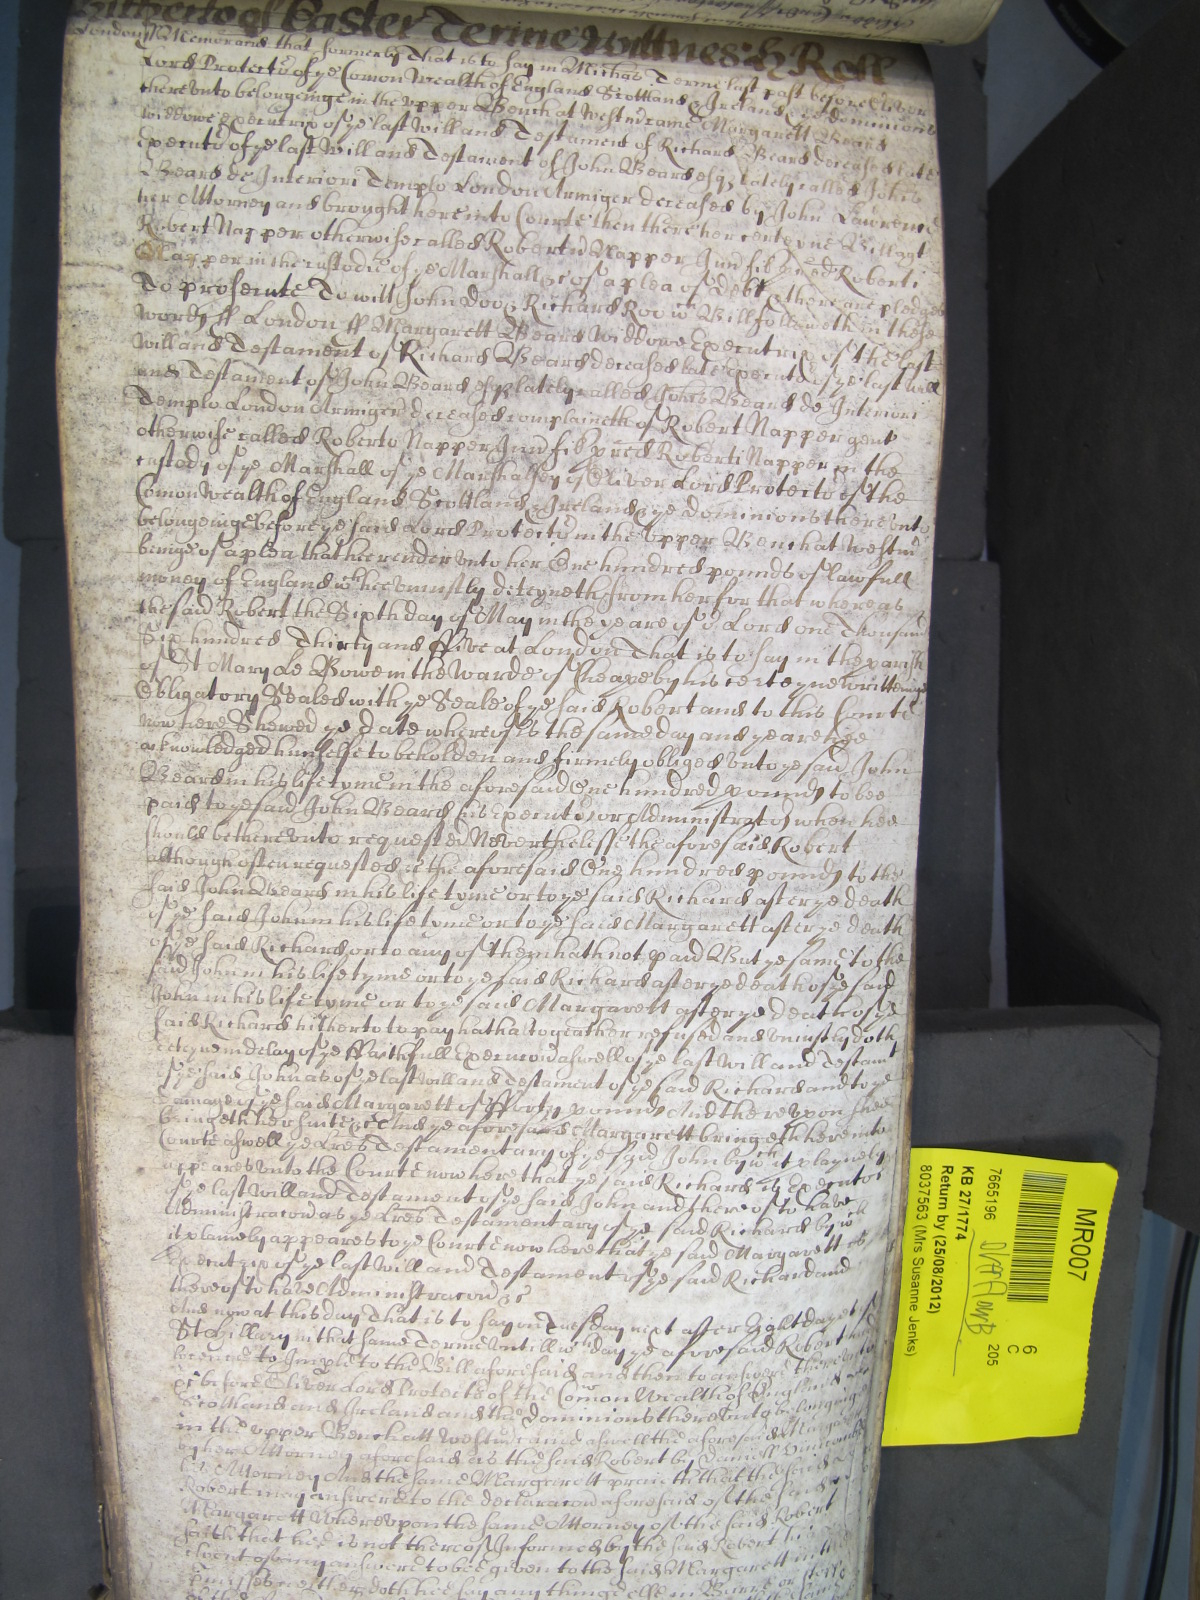 Hitherto of Easter Terme Wittnes: H Roll
London ss Memorand that formerly That is to say in Michas Terme last past before Oliver
Lord Protector of ye Comon Wealth of England Scottland & Ireland & ye dominions
therevnto belongeinge in the vpper Bench at Westmr came Margarett Beard
widdowe executrix of ye last will and Testament of Richard Beard deceased late
Executor of ye last Will and Testament of John Beard esqr lately called John
Beard de Interiori Templo London Armiger deceased by John Lawrence
her Attorney and brought here into Courte then there her certeyne Bill agt
Robert Napper otherwise called Robertu Napper Roberti
Napper in the custodie of ye Marshall &c of a plea of debt & there are pledges
To prosecute To witt John Doo & Richard Roo wch Bill followeth in these
words ss London ss Margarett Beard Widdowe Executrix of the last
will and Testament of Richard Beard deceased late Executor of ye last Will
and Testament of John Beard esqr lately called John Beard de Interiori
Templo London Armiger deceased complaineth of Robert Napper gent
otherwise called Roberto Napper Roberti Napper in the
custody of ye Marshall of ye Marshalsey of Oliver Lord Protector of the
Comon Wealth of England Scottland & Ireland & ye dominions therevnto
belongeinge before ye said Lord Protector in the vpper Bench at Westmr
beinge of a plea that hee render vnto her One hundred pounds of lawfull
money of England wch hee vniustly deteyneth from her for that whereas
the said Robert the Sixth day of May in the yeare of or Lord one Thousand
Six hundred Thirty and ffive at London That is to say in the parish
of St Mary Le Bowe in the warde of Cheape by his certeyne writteinge
Obligatory Sealed with ye Seale of ye said Robert and to this Courte
now here Shewed ye date whereof is the same day and yeare hee
acknowledged himselfe to be holden and firmely obliged vnto ye said John
Beard in his life tyme in the aforesaid One hundred pounds to bee
paid to ye said John Beard his Executors or Administrators when hee
should be therevnto requested Neverthelesse the aforesaid Robert
although often requested &c the aforesaid One hundred pounds to the
said John Beard in his life tyme or to ye said Richard after ye death
of ye said John in his life tyme or to ye said Margarett after ye death
of ye said Richard or to any of them hath not paid But ye same to the
said John in his life tyme or to ye said Richard after ye death of ye said
John in his life tyme or to ye said Margarett after ye death of ye
said Richard hitherto to pay hath altogeather refused and vniustly doth
deteyne in delay of ye ffaithfull Execucon aswell of ye last Will and Testamt
of ye said John as of ye last will and Testament of ye said Richard and to ye
damage of ye said Margarett of fforty pounds And therevpon shee
bringeth her suite &c And ye aforesaid Margarett bringeth here into
Courte aswell ye Lres Testamentary of ye said John by wch it playnely
appeares vnto the Courte now here that ye said Richard is Executor
of ye last will and Testament of ye said John and thereof to have
Administracon as ye Lres Testamentary of ye said Richard by wch
it plainely appeares to ye Courte now here that ye said Margarett is
Executrix of ye last will and Testament of ye said Richard and
thereof to have Administracon &c
And now at this day That is to say on Tuesday next after Eight dayes of
St Hillary in that same Terme vntill wch day ye aforesaid Robert had
licence to Imparle to the Bill aforesaid and then to answere therevnto
&c before Oliver Lord Protector of the Comon Wealth of England
Scotland and Ireland and the dominions therevnto belonginge
in the vpper Bench att Westmr came aswell the aforesaid Margarett
by her Attorney aforesaid as the said Robert by Daniell
his Attorney And the same Margarett prayeth that the said
Robert may answere to the declaracon aforesaid of the said
Margarett Wherevpon the same Attorney of the said Robert
saith that hee is not thereof Informed by the said Robert his
client of any answere to bee given to the said Margarett in the
premisses neither doth hee say any thinge else in Barre or
MR007
6
C
205
7665196
KB 27/1774
Return by (25/08/2012)
8037563 (Mrs Susanne Jenks)